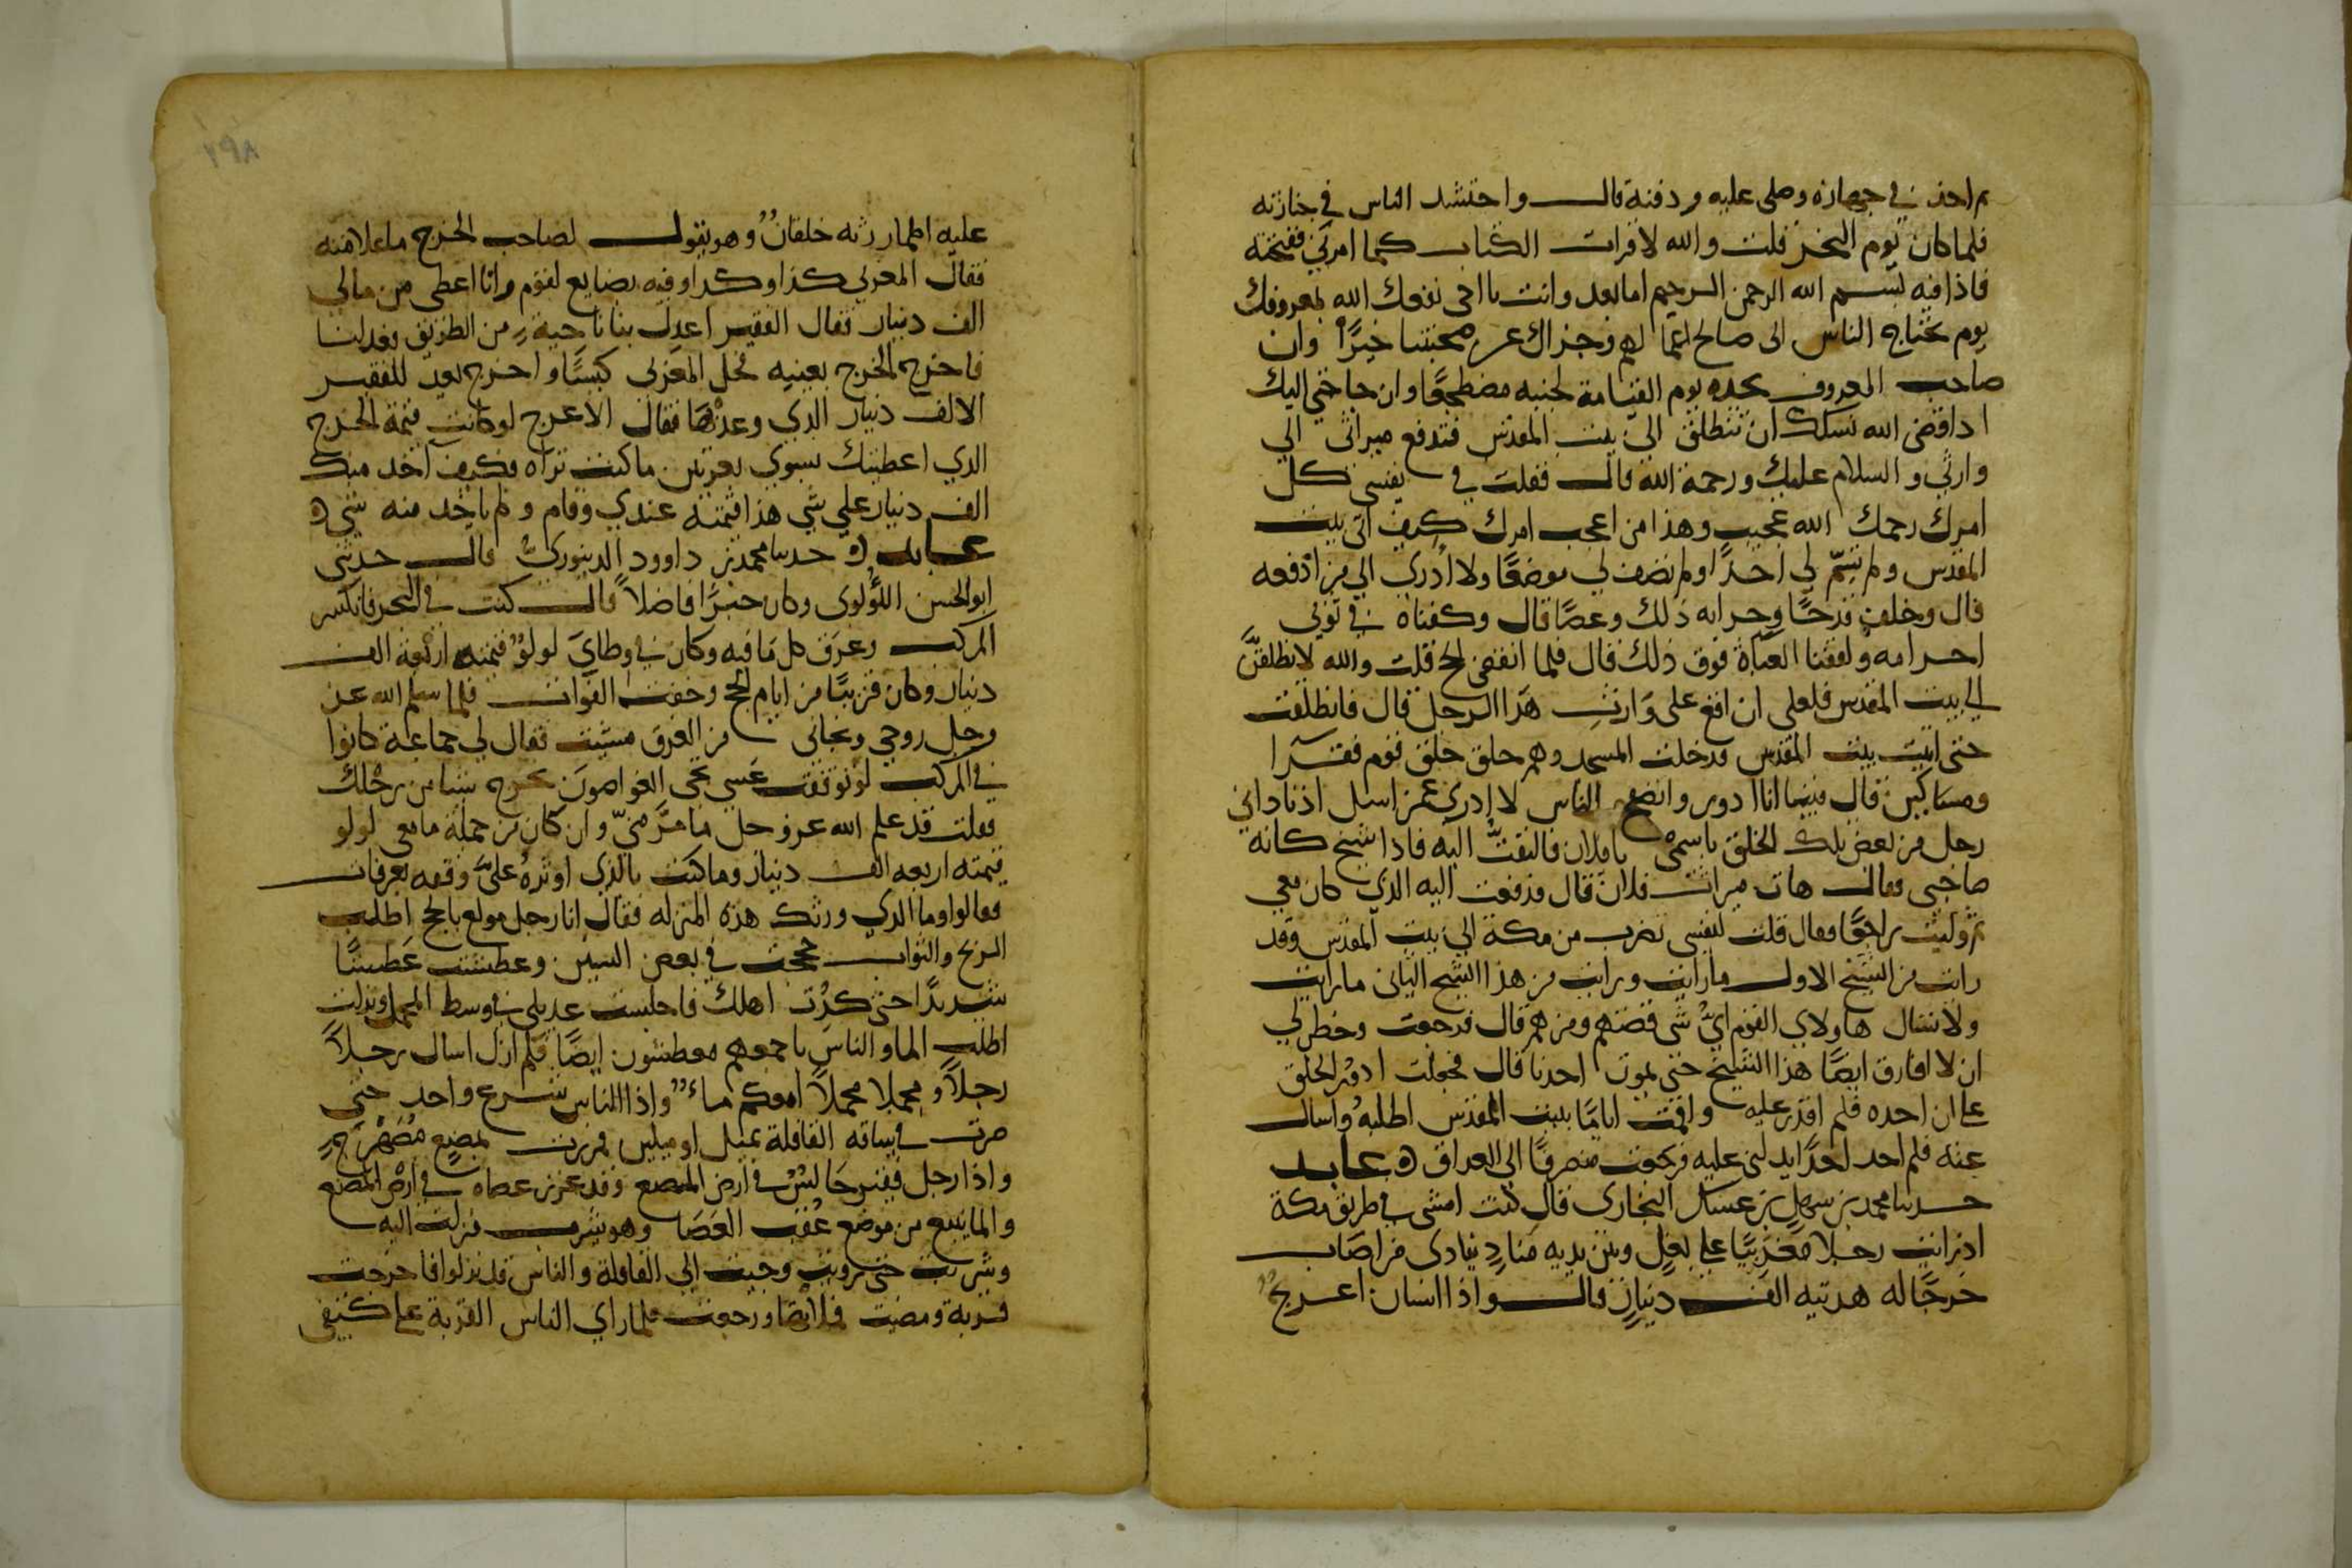 ثم اخذ في جهازه وصلى عليه ودفنه قال واحتشد الناس في جنازته
فلما كان يوم النحر قلت والله لاقران الكتاب كما امرني ففتحته
فاذا فيه بسم الله الرحمن الرحيم اما بعد وانت يا اخي نفعك الله بمعروفك
يوم يحتاج الناس الى صالح اعمالهم وجزاك عن صحبتنا خيرًا وان
صاحب المعروف يجده يوم القيامة لجنبه مضطجعًا وان حاجتي اليك
اذا قضى الله نسكك ان تنطلق الى بيت المقدس فتدفع ميراثي الي
وارثي والسلام عليك ورحمة الله قال فقلت في نفسي كل
امرك رحمك الله عجيب وهذا من اعجب امرك كيف اتي بيت
المقدس ولم تسمّ لي احدًا ولم تصف لي موضعًا ولا ادري الي من ادفعه
قال وخلف قدحًا وجرابه ذلك وعصًا قال وكفناه في ثوبي
احرامه ولففنا العباة فوق ذلك قال فلما انقضى الحج قلت والله لانطلقنّ
الي بيت المقدس فلعلي ان اقع على وارث هذا الرجل قال فانطلقت
حتى اتيت بيت المقدس فدخلت المسجد وهم حلق حلق قوم فقرا
ومساكين قال فبينما انا ادور واتصفح الناس لا ادري عمن اسل اذ ناداني
رجل من بعض تلك الحلق باسمي يا فلان فالتفتّ اليه فاذا شيخ كانه
صاحبي فقال هات ميراث فلان قال فدفعت اليه الذي كان معي
ثم وليت راجعًا فقال قلت لنفسي تضرب من مكة الي بيت المقدس وقد
رايت من الشيخ الاول ما رايت ورايت من هذا الشيخ الثاني ما رايت
ولا تسال هاولاي القوم ايّ شي قصتهم ومن هم قال فرجعت وخطر لي
ان لا افارق ايضًا هذا الشيخ حتى يموت احدنا قال فجعلت ادور الحلق
علي ان اجده فلم اقدر عليه واقمت ايامًا ببيت المقدس اطلبه واسال
عنه فلم اجد احدًا يدلني عليه فرجعت منصرفًا الى العراق ه عابد
حدثنا محمد بن سهل بن عسكر البخاري قال كنت امشي في طريق مكة
اذ رايت رجلا مغربيًا علي بغل وبين يديه منادٍ ينادي من اصاب
خرجًا له هديته الف دينارٍ قال واذا انسان اعرج
عليه اطمار رثه خلقان وهو يقول لصاحب الخرج ما علامته
فقال المغربي كذا وكذا وفيه بضايع لقوم وانا اعطى من مالي
الف دينار فقال الفقير اعدل بنا ناحيةً من الطريق فعدلنا
فاخرج الخرج بعينيه فحل المغربي كيسًا واخرج يعد للفقير
الالف دينار الذي وعدها فقال الاعرج لو كانت قيمة الخرج
الذي اعطيتك يسوي بعرتين ما كنت تراه فكيف اخذ منك
الف دينار علي شي هذا قيمته عندي وقام ولم ياخذ منه شي ه
عابد ه حدثنا محمد بن داوود الدينوري قال حدثني
ابو الحسن اللؤلوى وكان خيرًا فاضلاً قال كنت في البحر فانكسر
المركب وغرق كل ما فيه وكان في وطاي لولو قيمته اربعة الف
دينار وكان قريبًا من ايام الحج وخفت الفوات فلما سلم الله عز
وجل روحي ونجاني من الغرق مشيت فقال لي جماعة كانوا
في المركب لو توقفت عسى يجي الغواصون يخرج شيا من رحلك
فقلت قد علم الله عز وجل ما مرّ منيّ وان كان من جملة ما معي لولو
قيمته اربعه الف دينار وما كنت بالذي اوثره علىّ وقفه بعرفات
فقالوا وما الذي ورثك هذه المنزله فقال انا رجل مولع بالحج اطلب
الربح والثواب فحججت في بعض السنين وعطشت عَطشًا
شديدًا حتى كدت اهلك فاجلست عديلي في وسط المحمل ونزلت
اطلب الماء والناس باجمعهم معطشون ايضًا فلم ازل اسال رجلاً
رجلاً ومحملا محملاً امعكم ماء واذا الناس شرع واحد حتى
صرت في ساقه القافلة بميل او ميلين فمررت بمصنعٍ مُصَهْرَجٍ
واذا رجل فقير جالس في ارض المصنع وقد غرز عصاه في ارض المصنع
والما ينبع من موضع عُقب العصا وهو يشرب فنزلت اليه
وشربت حتى رويت وجيت الى القافلة والناس قد نزلوا فاخرجت
قربة ومضيت فملاتها ورجعت فلما راي الناس القربة علي كتفي
٢٩٨